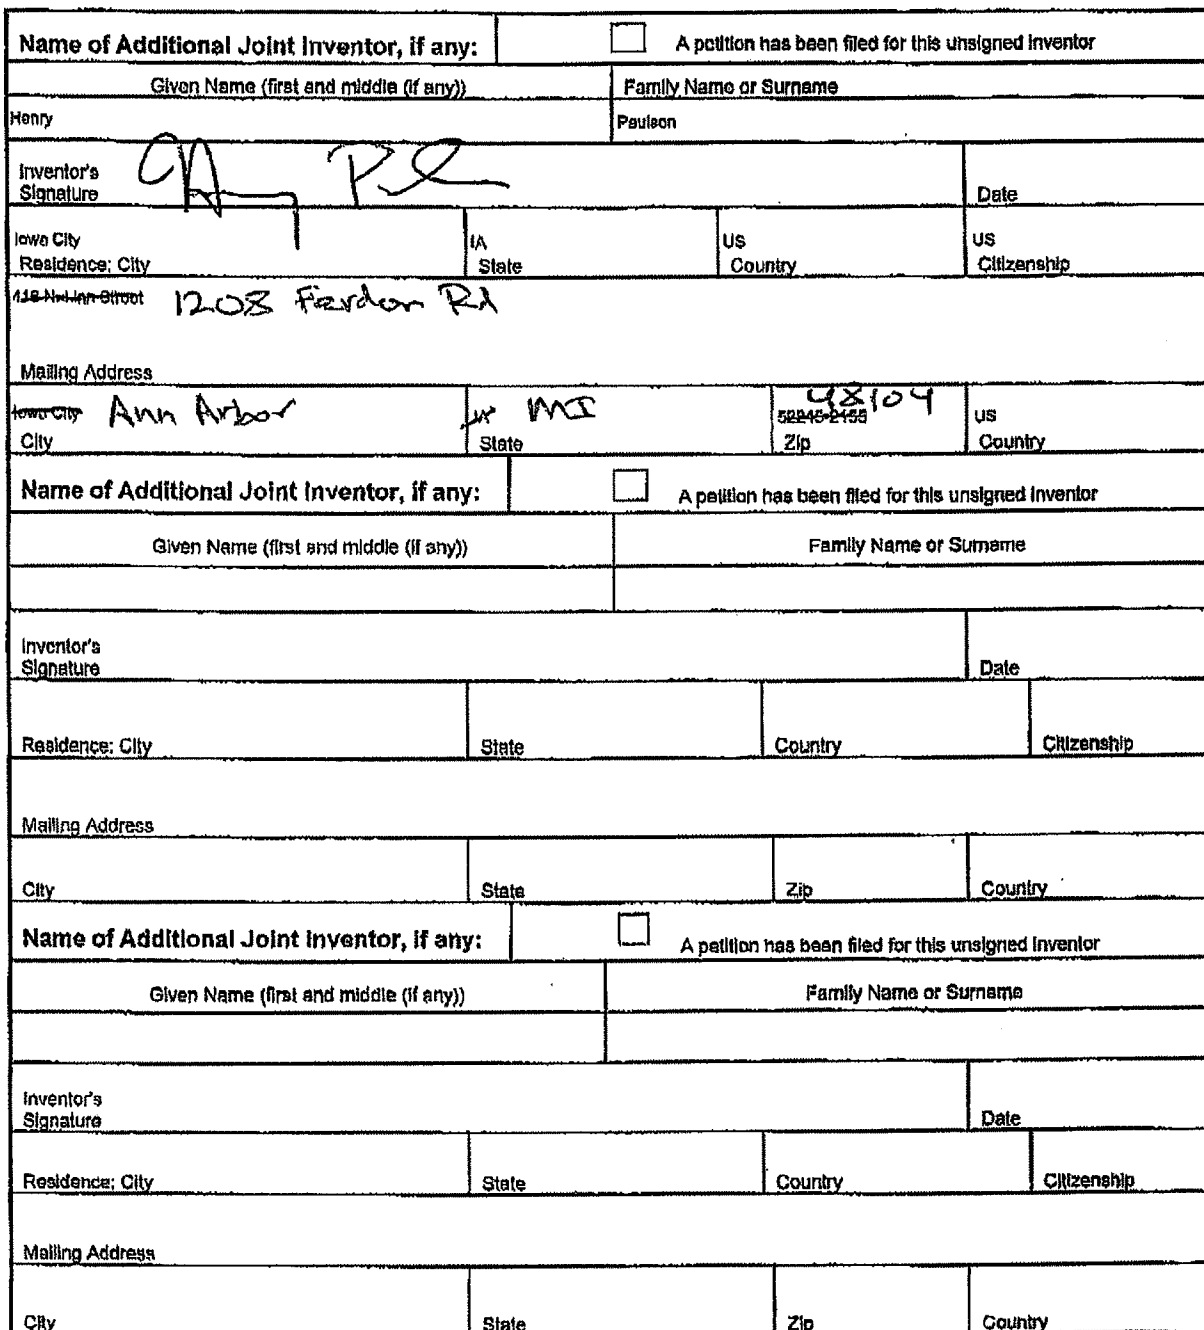 Name of Additional Joint Inventor, if any: A petition has been filed for this unsigned inventor
Given Name (first and middle (if any)) Family Name or Surname
Henry Paulson
Inventor's
Signature Date
Iowa City IA US US
Residence: City State Country Citizenship
1208 Ferdon Rd
Mailing Address
Iowa City Ann Arbor IA MI 48104
52245-2155 US
City State Zip Country
Name of Additional Joint Inventor, if any: A petition has been filed for this unsigned inventor
Given Name (first and middle (if any)) Family Name or Surname
Inventor's
Signature Date
Residence: City State Country Citizenship
Mailing Address
City State Zip Country
Name of Additional Joint Inventor, if any: A petition has been filed for this unsigned inventor
Given Name (first and middle (if any)) Family Name or Surname
Inventor's
Signature Date
Residence: City State Country Citizenship
Mailing Address
City State Zip Country